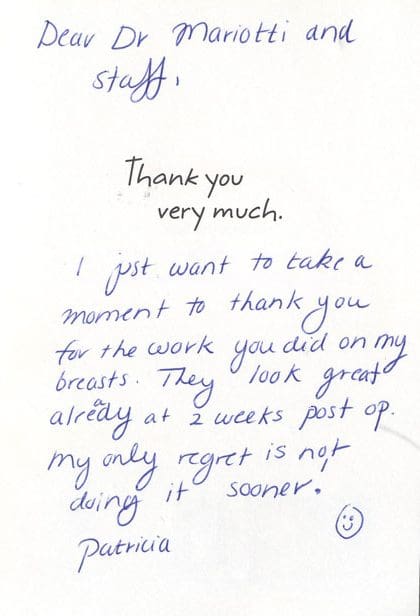 Dear Dr Mariotti and
staff,
Thank you
very much.
I just want to take a
moment to thank you
for the work you did on my
breasts. They look great
already at 2 weeks post op.
my only regret is not
doing it sooner.
Patricia